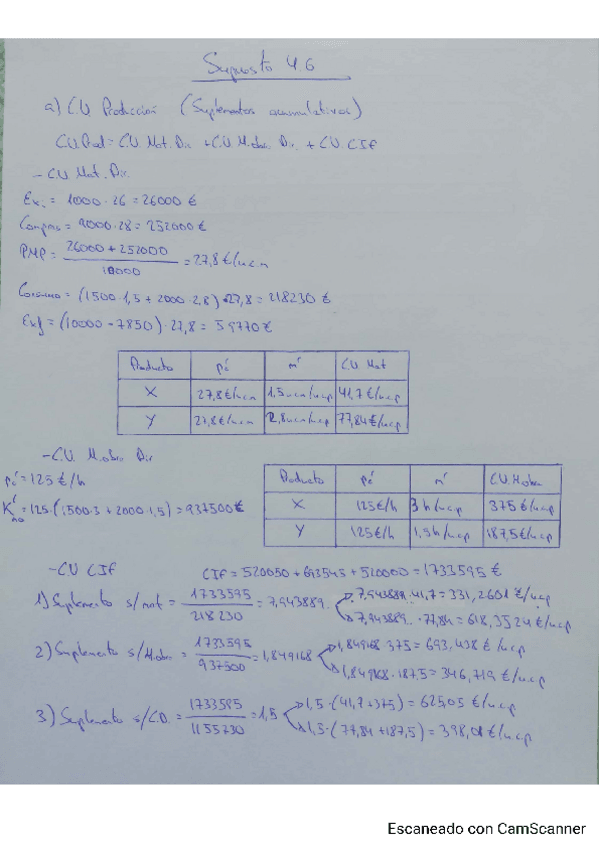 Supuesto 4.6
a) C.U. Producción (Suplementos acumulativos)
C.U. Prod = C.U. Mat. Dir. + C.U. M.obra Dir. + C.U. CIF
- C.U. Mat. Dir.
Exi = 1000 · 26 = 26000 €
Compras = 9000 · 28 = 252000 €
PMP = 26000 + 252000 / 10000 = 27,8 €/u.c.m
Consumo = (1500 · 1,5 + 2000 · 2,8) · 27,8 = 218230 €
Exf = (10000 - 7850) · 27,8 = 59770 €
Producto p´c m´ C.U. Mat
X 27,8 €/u.c.m 1,5 u.c.m/u.c.p 41,7 €/u.c.p
Y 27,8 €/u.c.m 2,8 u.c.m/u.c.p 77,84 €/u.c.p
- C.U. M.obra Dir
p´c = 125 €/h
K´mo = 125 · (1500 · 3 + 2000 · 1,5) = 937500 €
Producto p´c m´ C.U. M.obra
X 125 €/h 3 h/u.c.p 375 €/u.c.p
Y 125 €/h 1,5 h/u.c.p 187,5 €/u.c.p
- C.U. CIF CIF = 520050 + 693545 + 520000 = 1733595 €
1) Suplemento s/mat = 1733595 / 218230 = 7,943889.. 7,943889 · 41,7 = 331,2601 €/u.c.p
7,943889.. · 77,84 = 618,3524 €/u.c.p
2) Suplemento s/M.obra = 1733595 / 937500 = 1,849168 1,849168 · 375 = 693,438 €/u.c.p
1,849168 · 187,5 = 346,719 €/u.c.p
3) Suplemento s/C.D. = 1733595 / 1155730 = 1,5 1,5 · (41,7 + 375) = 625,05 €/u.c.p
1,5 · (77,84 + 187,5) = 398,01 €/u.c.p
Escaneado con CamScanner